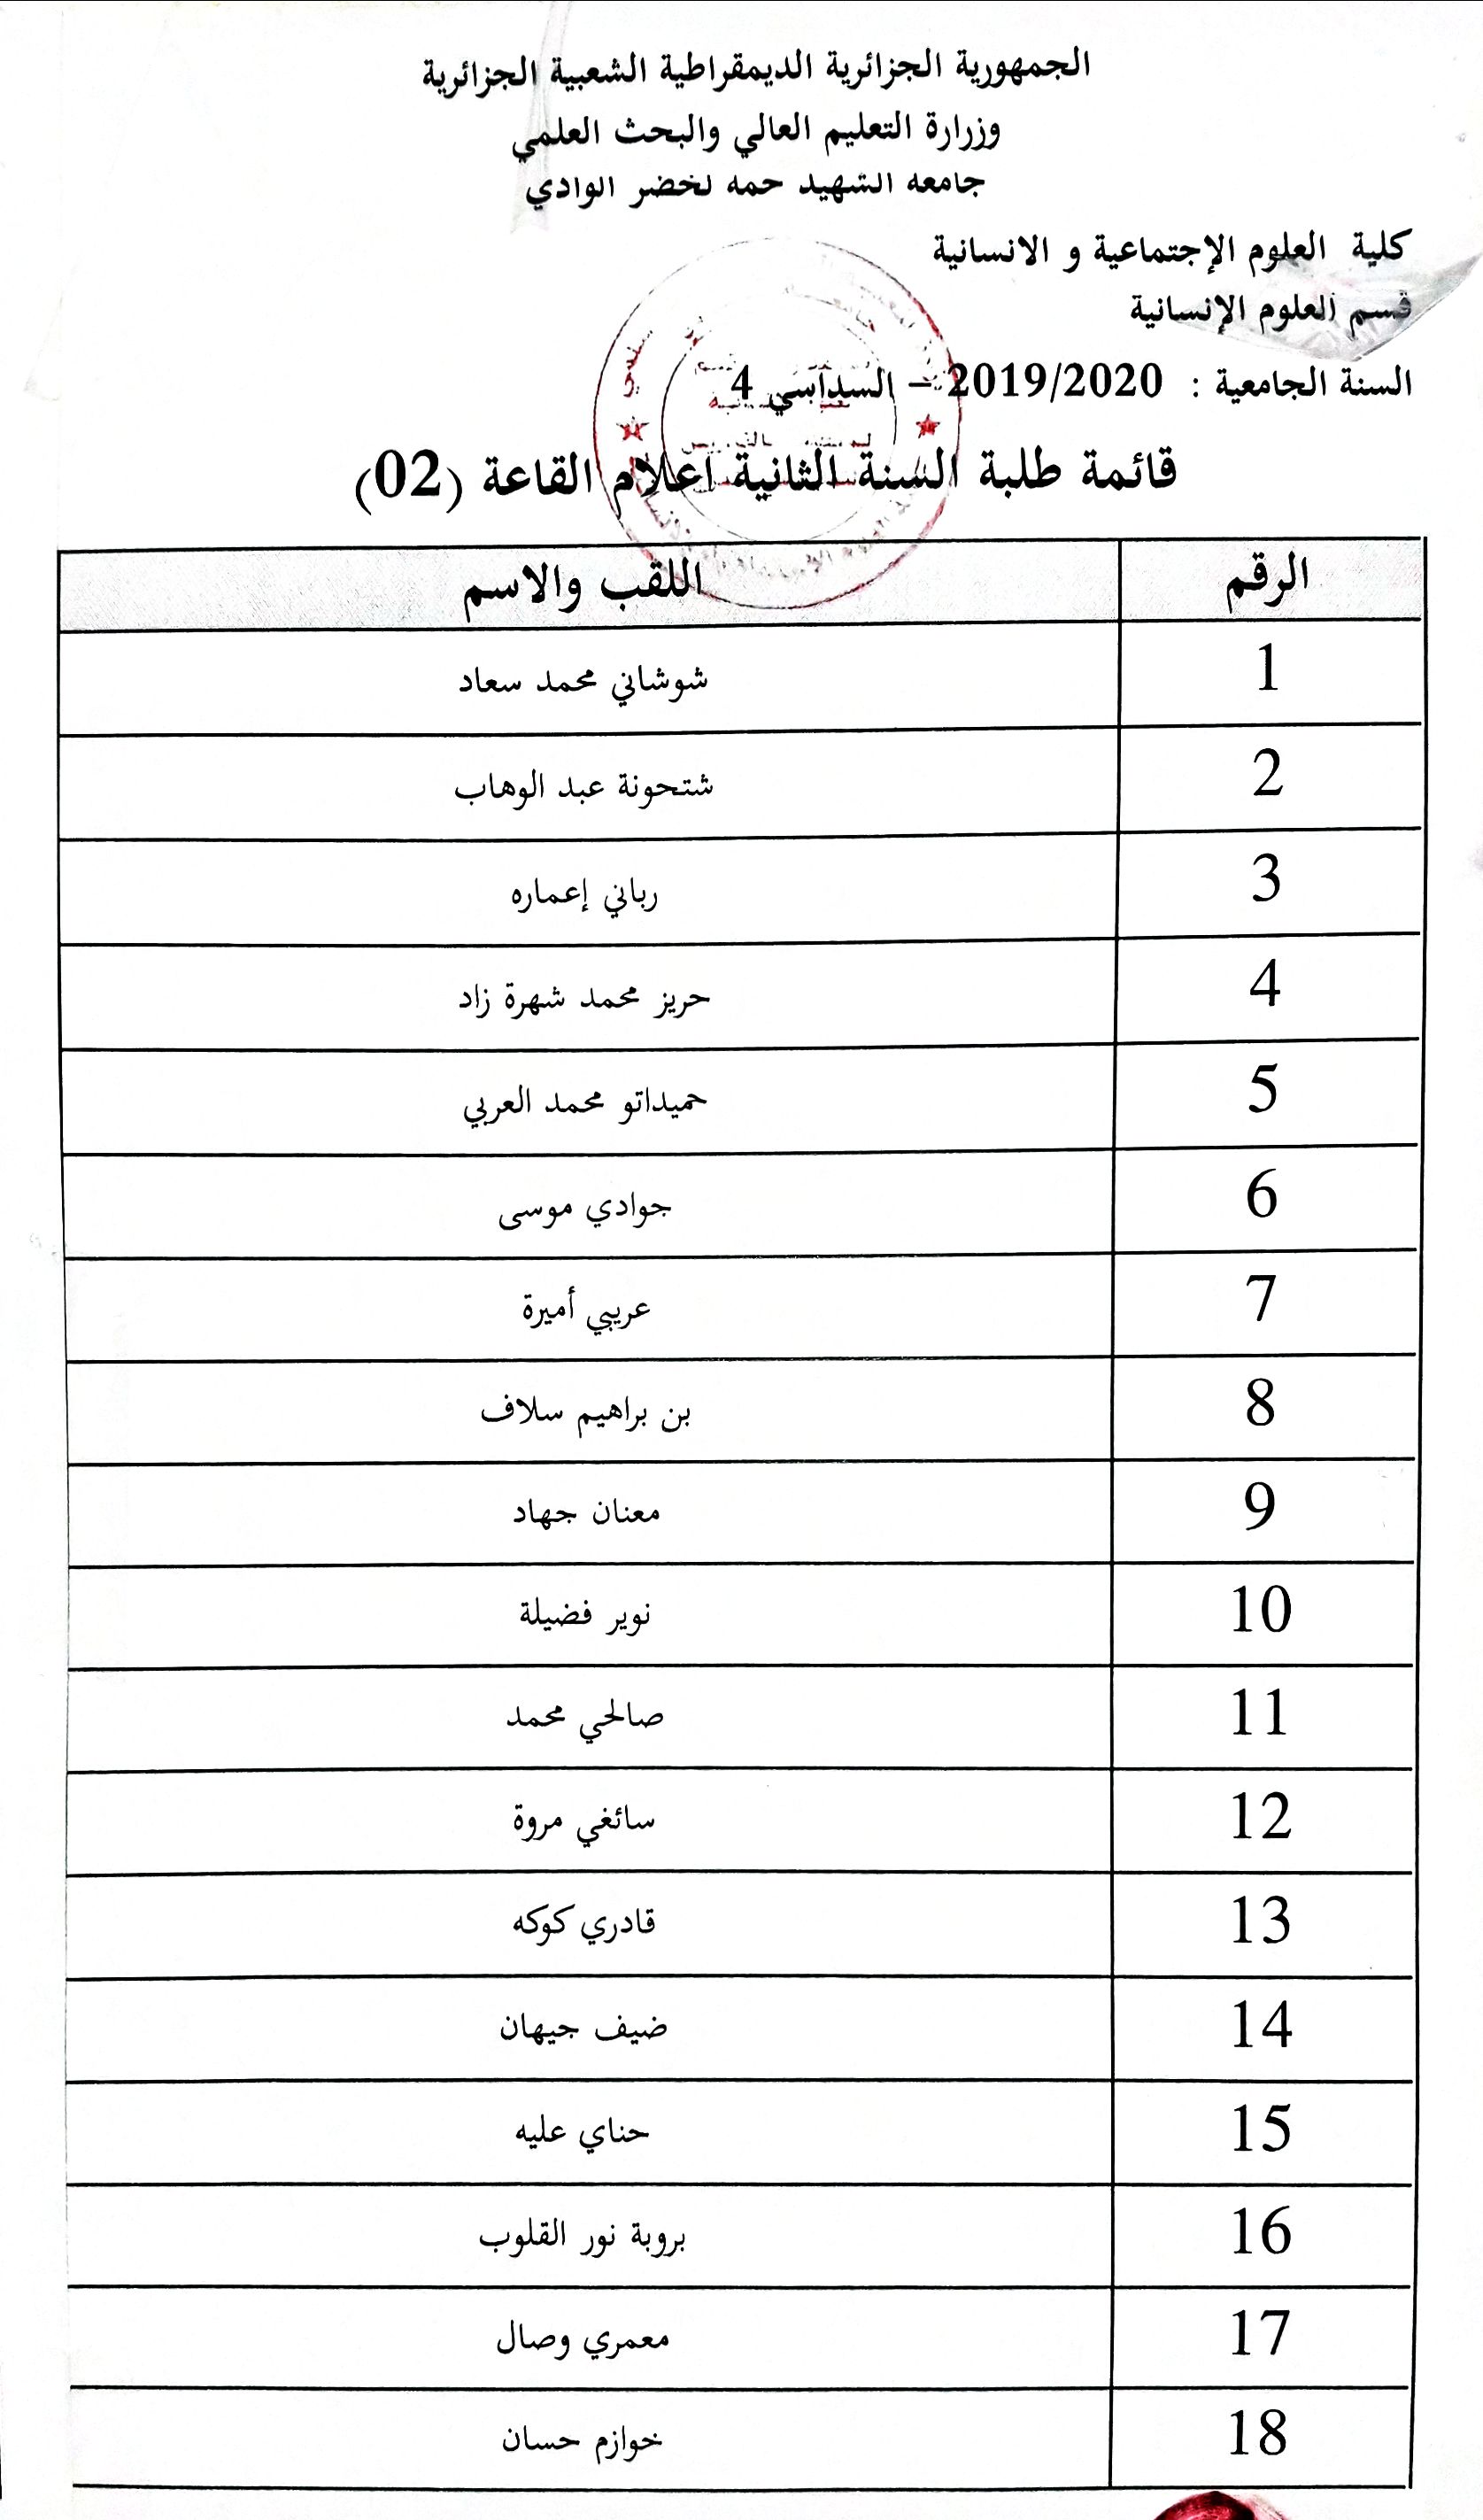 الجمهورية الجزائرية الديمقراطية الشعبية الجزائرية
وزرارة التعليم العالي والبحث العلمي
جامعه الشهيد حمه لخضر الوادي
كلية العلوم الإجتماعية و الانسانية
قسم العلوم الإنسانية
السنة الجامعية : 2019/2020 – السداسي 4
قائمة طلبة السنة الثانية اعلام القاعة (02)
الرقم اللقب والاسم
1 شوشاني محمد سعاد
2 شتحونة عبد الوهاب
3 رباني إعماره
4 حريز محمد شهرة زاد
5 حميداتو محمد العربي
6 جوادي موسى
7 عريبي أميرة
8 بن براهيم سلاف
9 معنان جهاد
10 نوير فضيلة
11 صالحي محمد
12 سائغي مروة
13 قادري كوكه
14 ضيف جيهان
15 حناي عليه
16 بروبة نور القلوب
17 معمري وصال
18 خوازم حسان